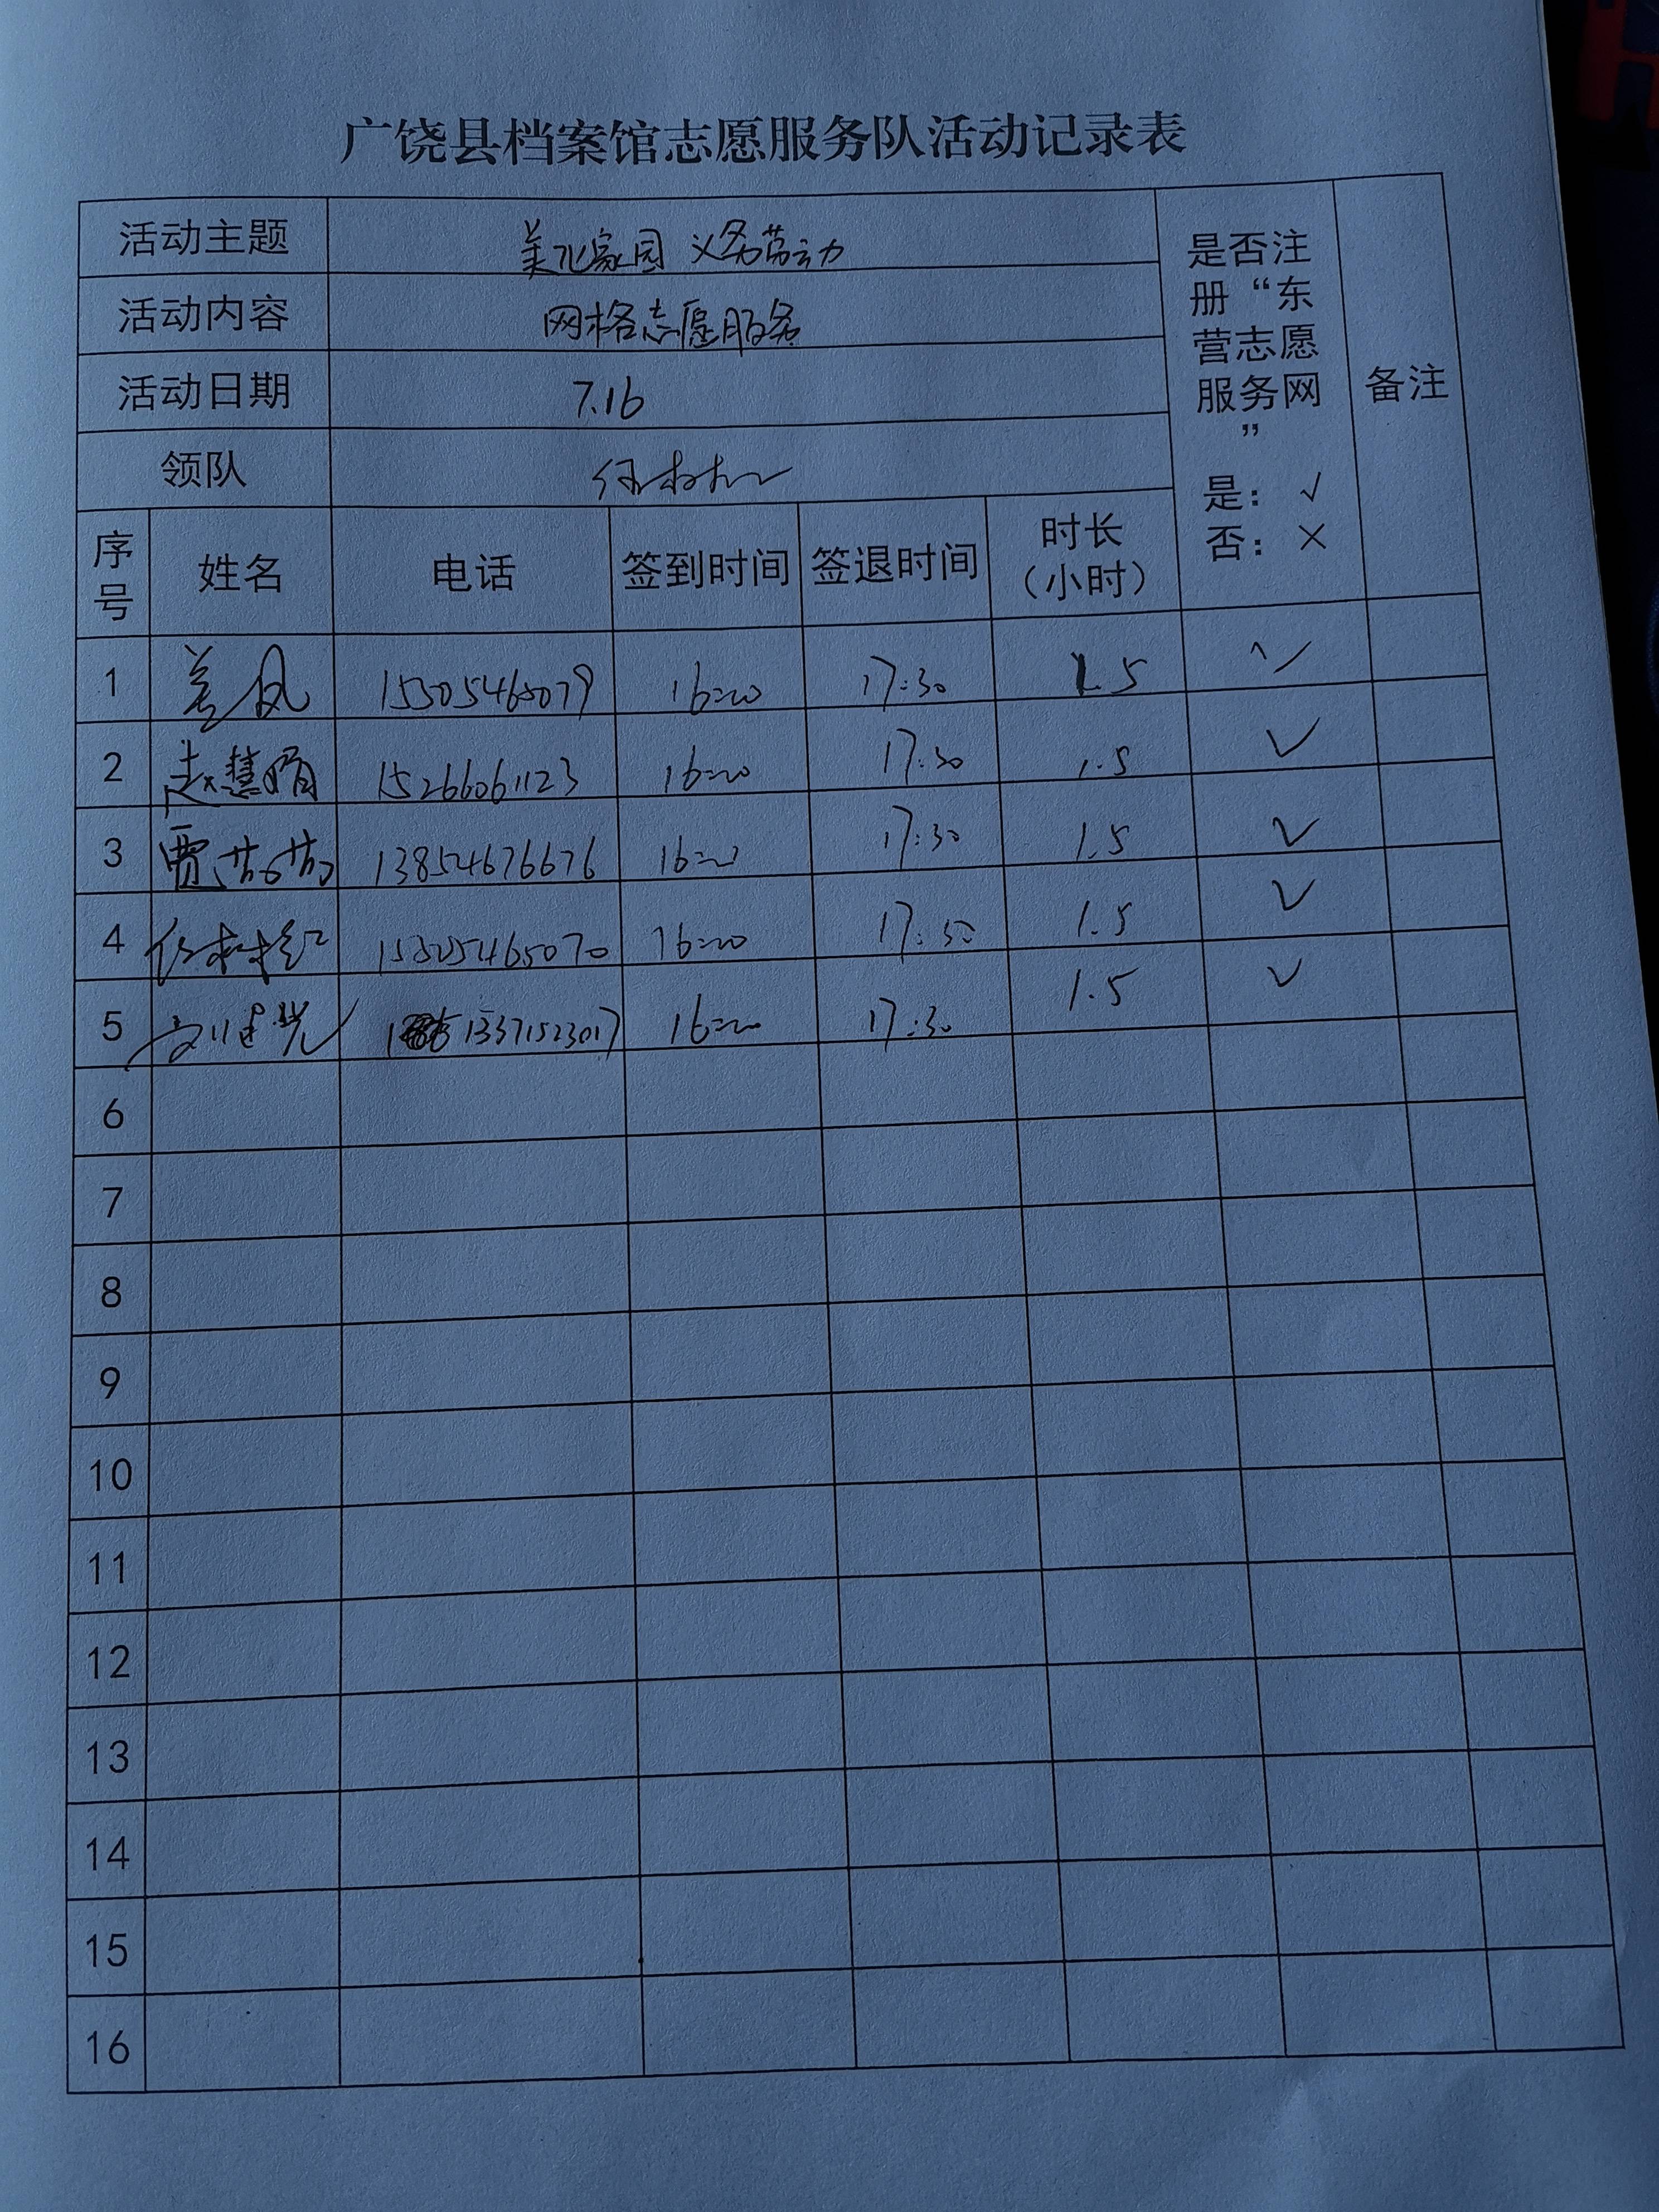 广饶县档案馆志愿服务队活动记录表
活动主题 美化家园 义务劳动
活动内容 网格志愿服务
活动日期 7.16
领队
是否注
册“东
营志愿
服务网
”
是：√
否：×
备注
序号 姓名 电话 签到时间 签退时间 时长（小时）
1 15305465079 16:20 17:30 1.5 √
2 赵慧娟 15266061123 16:20 17:30 1.5 √
3 贾茹茹 13854676676 16:20 17:30 1.5 √
4 16:20 17:30 1.5 √
5 13371523017 16:20 17:30 1.5 √
6
7
8
9
10
11
12
13
14
15
16